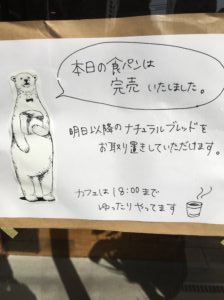 本日の食パンは
完売いたしました。
明日以降のナチュラルブレッドを
お取り置きしていただけます。
カフェは18:00まで
ゆったりやってます